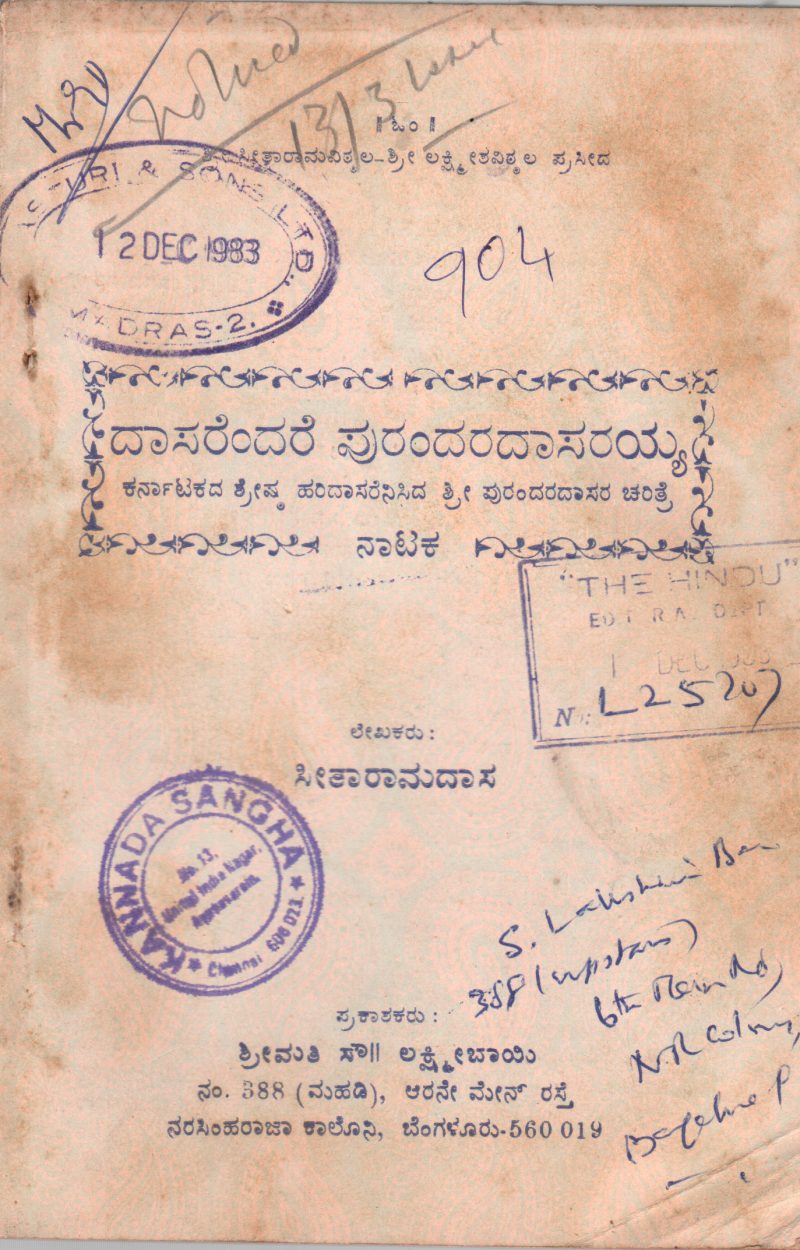 Noticed
13/3 issue
॥ ಓಂ ॥
ಶ್ರೀ ಸೀತಾರಾಮವಿಠ್ಠಲ-ಶ್ರೀ ಲಕ್ಷ್ಮೀಶವಿಠ್ಠಲ ಪ್ರಸೀದ
& SONS LTD.,
12 DEC 1983
MADRAS-2.
904
ದಾಸರೆಂದರೆ ಪುರಂದರದಾಸರಯ್ಯ
ಕರ್ನಾಟಕದ ಶ್ರೇಷ್ಠ ಹರಿದಾಸರೆನಿಸಿದ ಶ್ರೀ ಪುರಂದರದಾಸರ ಚರಿತ್ರೆ
ನಾಟಕ
"THE HINDU"
DEC
No: L25207
ಲೇಖಕರು :
ಸೀತಾರಾಮದಾಸ
KANNADA SANGHA
No. 13,
Nagar,
Chennai 600 023.
S. Lakshmi Bai
388 (upstairs)
6th Main Rd,
N.R Colony,
ಪ್ರಕಾಶಕರು :
ಶ್ರೀಮತಿ ಸೌ॥ ಲಕ್ಷ್ಮೀಬಾಯಿ
ನಂ. 388 (ಮಹಡಿ), ಆರನೇ ಮೇನ್ ರಸ್ತೆ
ನರಸಿಂಹರಾಜಾ ಕಾಲೊನಿ, ಬೆಂಗಳೂರು-560 019